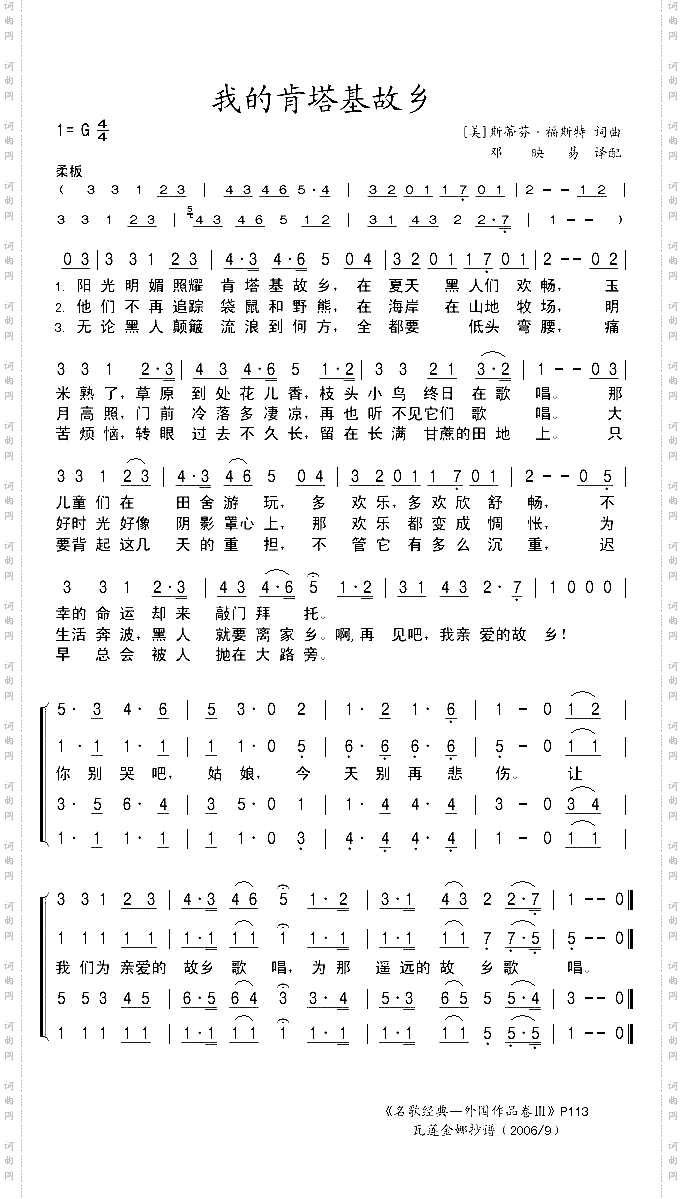 我的肯塔基故乡
1= G 4/4
[美]斯蒂芬·福斯特 词曲
邓 映 易 译配
柔板
( 3 3 1 23 | 43 46 5·4 | 32011701 | 2 - - 12 |
3 3 1 23 | 5 43 46 5 12 | 31 43 2 2·7 | 1 - - )
03 | 3 3 1 23 | 4·3 4·6 5 04 | 32011701 | 2 - - 02 |
1. 阳光明媚照耀 肯塔基故乡, 在 夏天 黑人们 欢畅, 玉
2. 他们不再追踪 袋鼠和野熊, 在 海岸 在山地 牧场, 明
3. 无论黑人颠簸 流浪到何方, 全 都要 低头 弯腰, 痛
3 3 1 2·3 | 43 4·3 5 1·2 | 3 3 21 3·2 | 1 - - 03 |
米熟了, 草原 到处花儿香, 枝头小鸟 终日 在歌 唱。 那
月高照, 门前 冷落多凄凉, 再也听不见它们 歌 唱。 大
苦烦恼, 转眼 过去不久长, 留在长满 甘蔗的田地 上。 只
3 3 1 23 | 4·3 46 5 04 | 32011701 | 2 - - 05 |
儿童们在 田舍游玩, 多 欢乐, 多欢欣舒畅, 不
好时光好像 阴影罩心上, 那 欢乐 都变成惆怅, 为
要背起这几 天的重担, 不 管它 有多么沉重, 迟
3 3 1 2·3 | 43 4·6 5 1·2 | 31 43 2·7 | 1 0 0 0 |
幸的命运却来 敲门拜 托。
生活奔波, 黑人 就要离家乡。啊,再 见吧,我亲爱的故 乡!
早 总会被人 抛在大路旁。
5·3 4·6 | 5 3·0 2 | 1·2 1·6 | 1 - 0 12 |
1·1 1·1 | 1 1·0 5 | 6·6 6·6 | 5 - 0 11 |
你别哭吧, 姑娘, 今 天别再悲 伤。 让
3·5 6·4 | 3 5·0 1 | 4·4 4·4 | 3 - 0 34 |
1·1 1·1 | 1 1·0 5 | 4·4 4·4 | 1 - 0 11 |
3 3 1 23 | 4·3 46 5 1·2 | 3·1 43 2 2·7 | 1 - - 0 ‖
1 1 1 11 | 1·1 11 1 1·1 | 1·1 11 7 7·5 | 5 - - 0 ‖
我们为亲爱的 故乡歌 唱, 为那 遥远的故 乡歌 唱。
5 5 3 45 | 6·5 64 3 3·4 | 5·3 65 5 5·4 | 3 - - 0 ‖
1 1 1 11 | 1·1 11 1 1·1 | 1·1 11 5 5·5 | 1 - - 0 ‖
《名歌经典—外国作品卷Ⅲ》P113
瓦莲金娜抄谱(2006/9)
词曲网